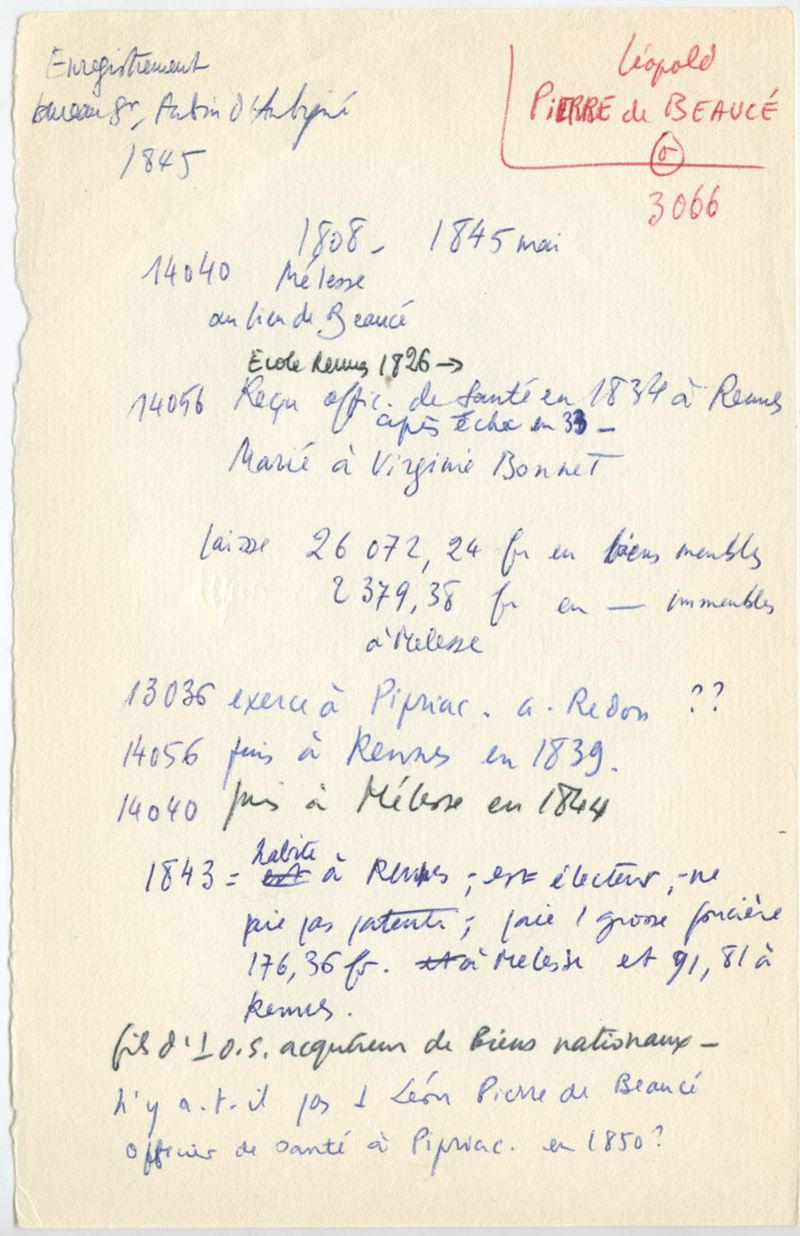 Enregistrement
bureau St, Aubin d'Aubigné
1845
Léopold
PIERRE de BEAUCÉ
σ
3066
1808 - 1845 mai
14040 Mélesse
au lieu de Beaucé
Ecole Rennes 1826 →
14056 Reçu offic. de Santé en 1834 à Rennes
après échec en 33 -
Marié à Virginie BONNET
laisse 26 072, 24 fr en biens meubles
2 379, 38 fr en — immeubles
à Melesse
13036 exerce à Pipriac. a. Redon ??
14056 puis à Rennes en 1839.
14040 puis à Mélesse en 1844
habite
1843 = est à Rennes ; est électeur, - ne
paie pas patente ; paie 1 grosse foncière
176, 36 fr. et à Melesse et 91, 81 à
Rennes.
fils d'1 O.S. acquéreur de biens nationaux -
N'y a.t.il pas 1 Léon Pierre de Beaucé
officier de santé à Pipriac. en 1850 ?